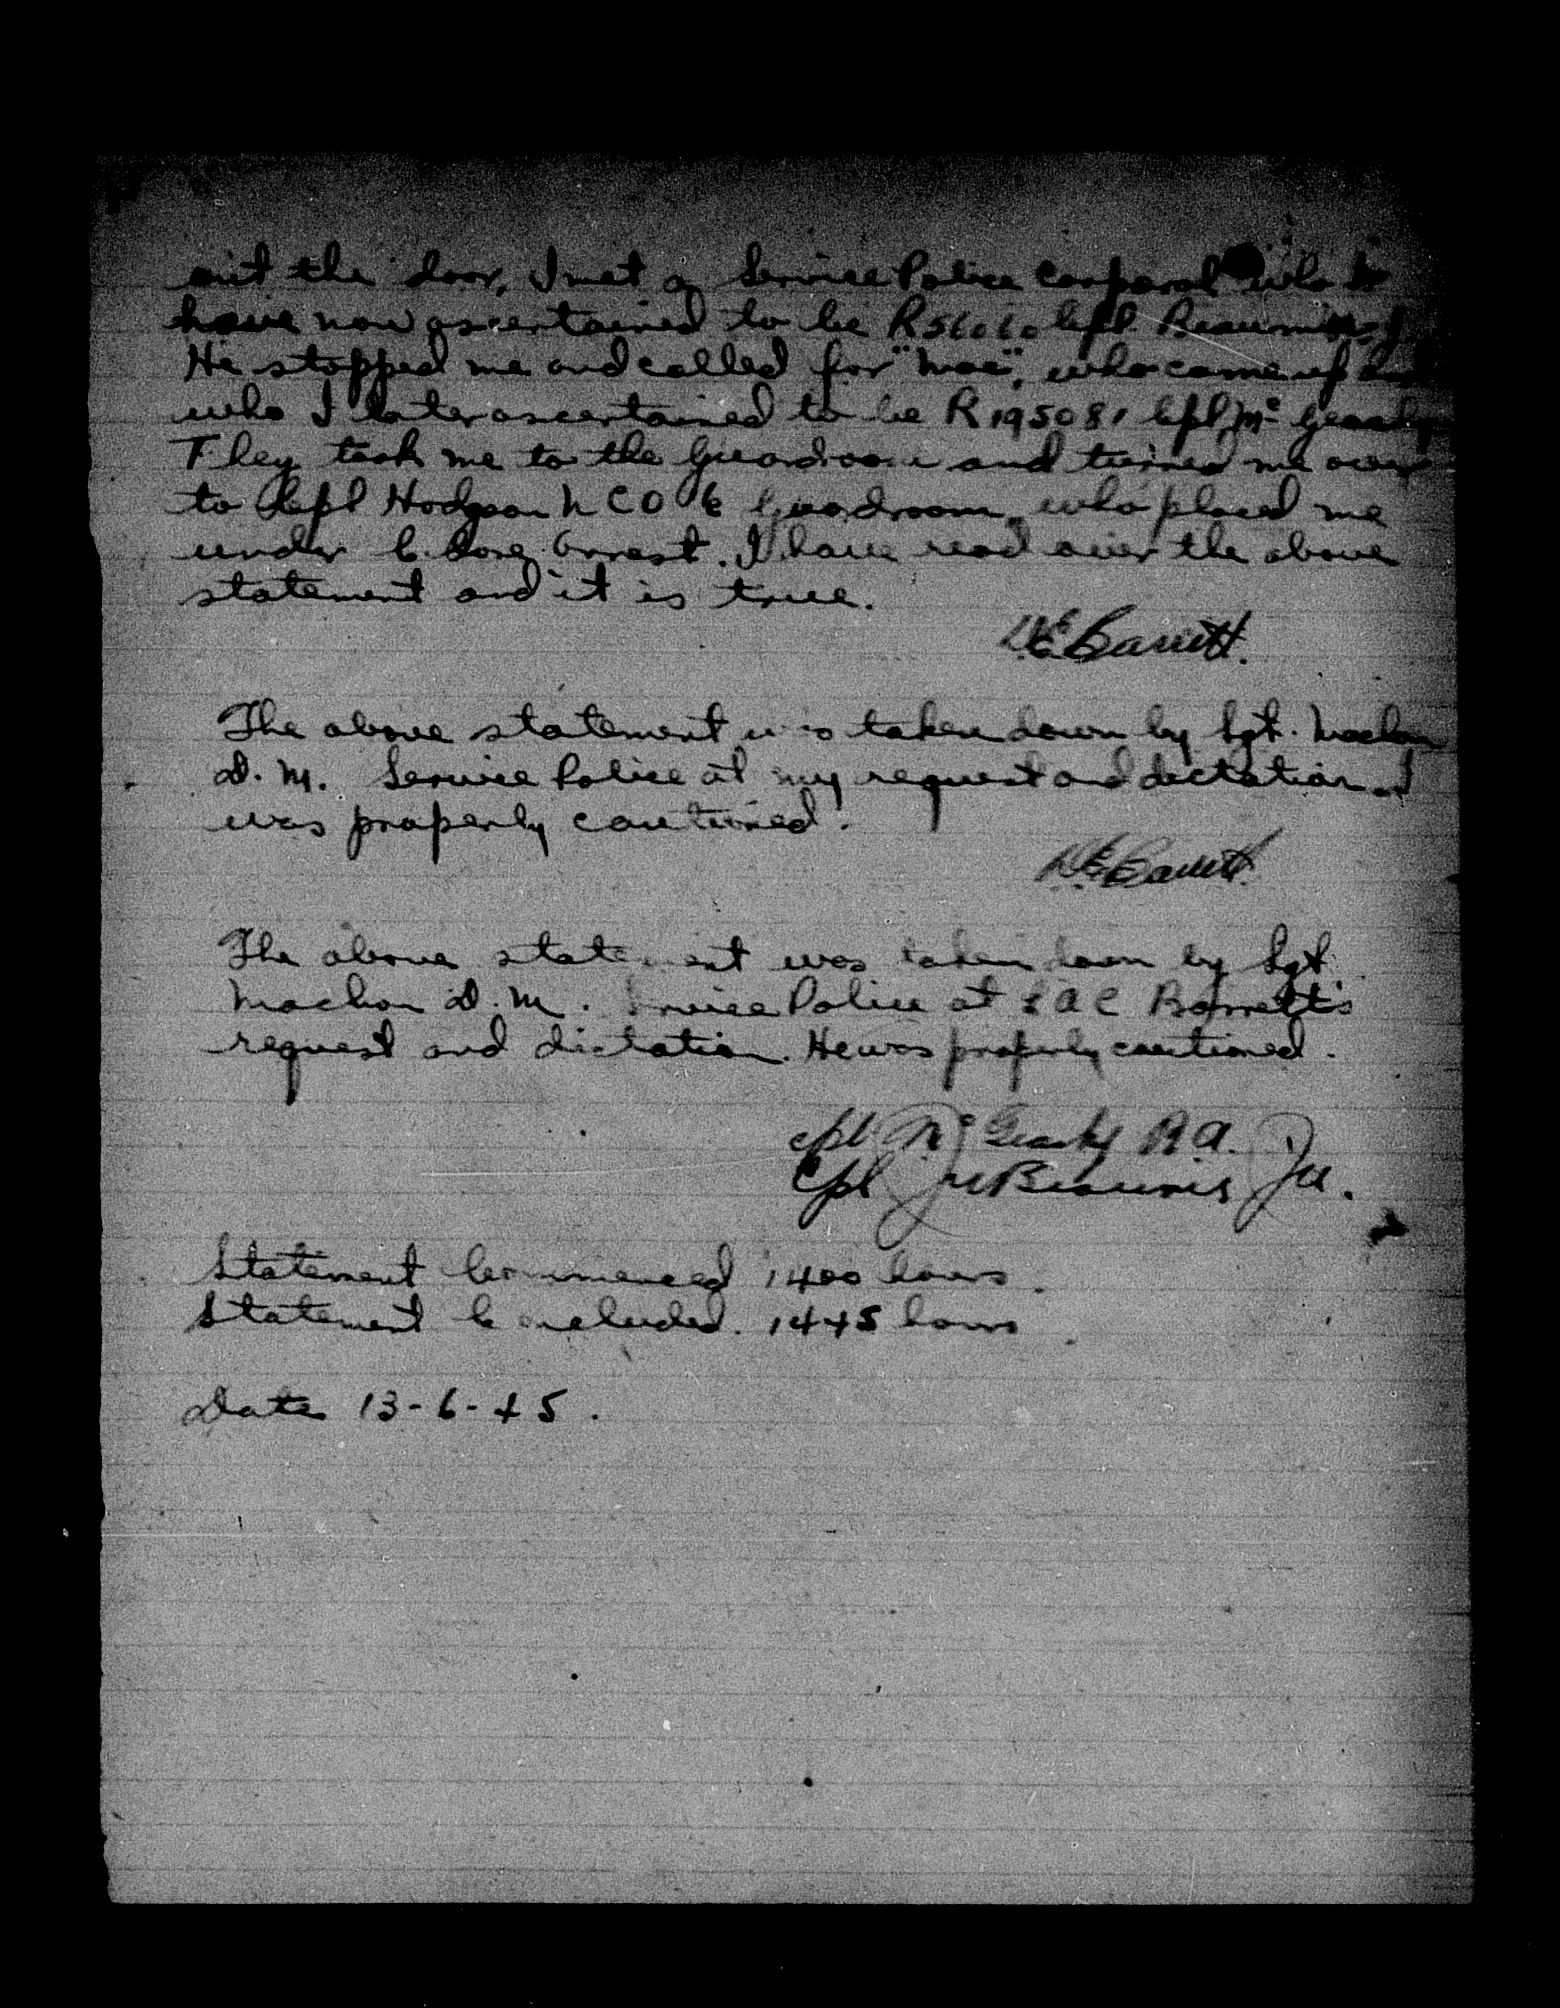 out the door, I met a Service Police Corporal who I
have now ascertained to be R56060 Cpl
He stopped me and called for "Mac", who came up and
who I later ascertained to be R195081 Cpl McGeachy
They took me to the Guardroom and turned me over
to Cpl Hodgson NCO i/c Guardroom, who placed me
under Close Arrest. I have read over the above
statement and it is true.
D.E. Barrett.
The above statement was taken down by Sgt. Machon
D.M. Service Police at my request and dictation. I
was properly cautioned.
D.E. Barrett.
The above statement was taken down by Sgt.
Machon D.M. Service Police at LAC Barrett's
request and dictation. He was properly cautioned.
Cpl McGeachy R A.
Cpl
Statement Commenced 1400 hours.
Statement Concluded. 1445 hours.
Date 13-6-45.